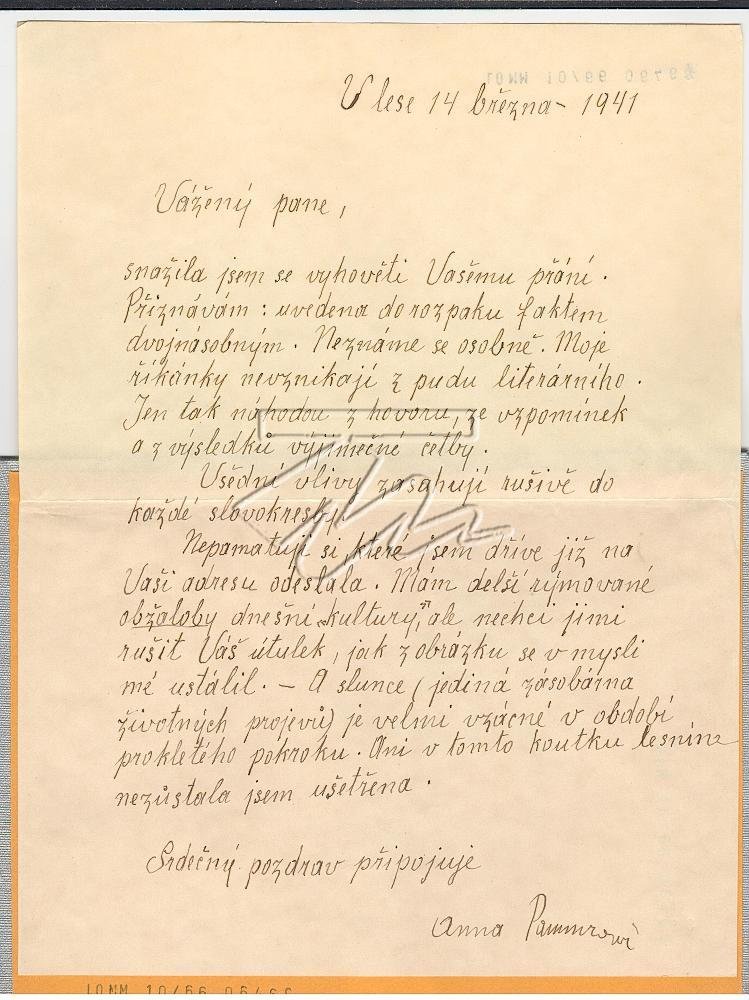 V lese 14 března - 1941
Vážený pane,
snažila jsem se vyhověti Vašemu přání.
Přiznávám: uvedena do rozpaku faktem
dvojnásobným. Neznáme se osobně. Moje
říkánky nevznikají z pudu literárního.
Jen tak náhodou z hovoru, ze vzpomínek
a z výsledků výjimečné četby.
Všední vlivy zasahují rušivě do
každé slovokresby.
Nepamatuji si, které jsem dříve již na
Vaši adresu odeslala. Mám delší rýmované
obžaloby dnešní „kultury", ale nechci jimi
rušit Váš útulek, jak z obrázku se v mysli
mé ustálil. — A slunce (jediná zásobárna
životných projevů) je velmi vzácné v období
prokletého pokroku. Ani v tomto koutku lesním
nezůstala jsem ušetřena.
Srdečný pozdrav připojuje
Anna